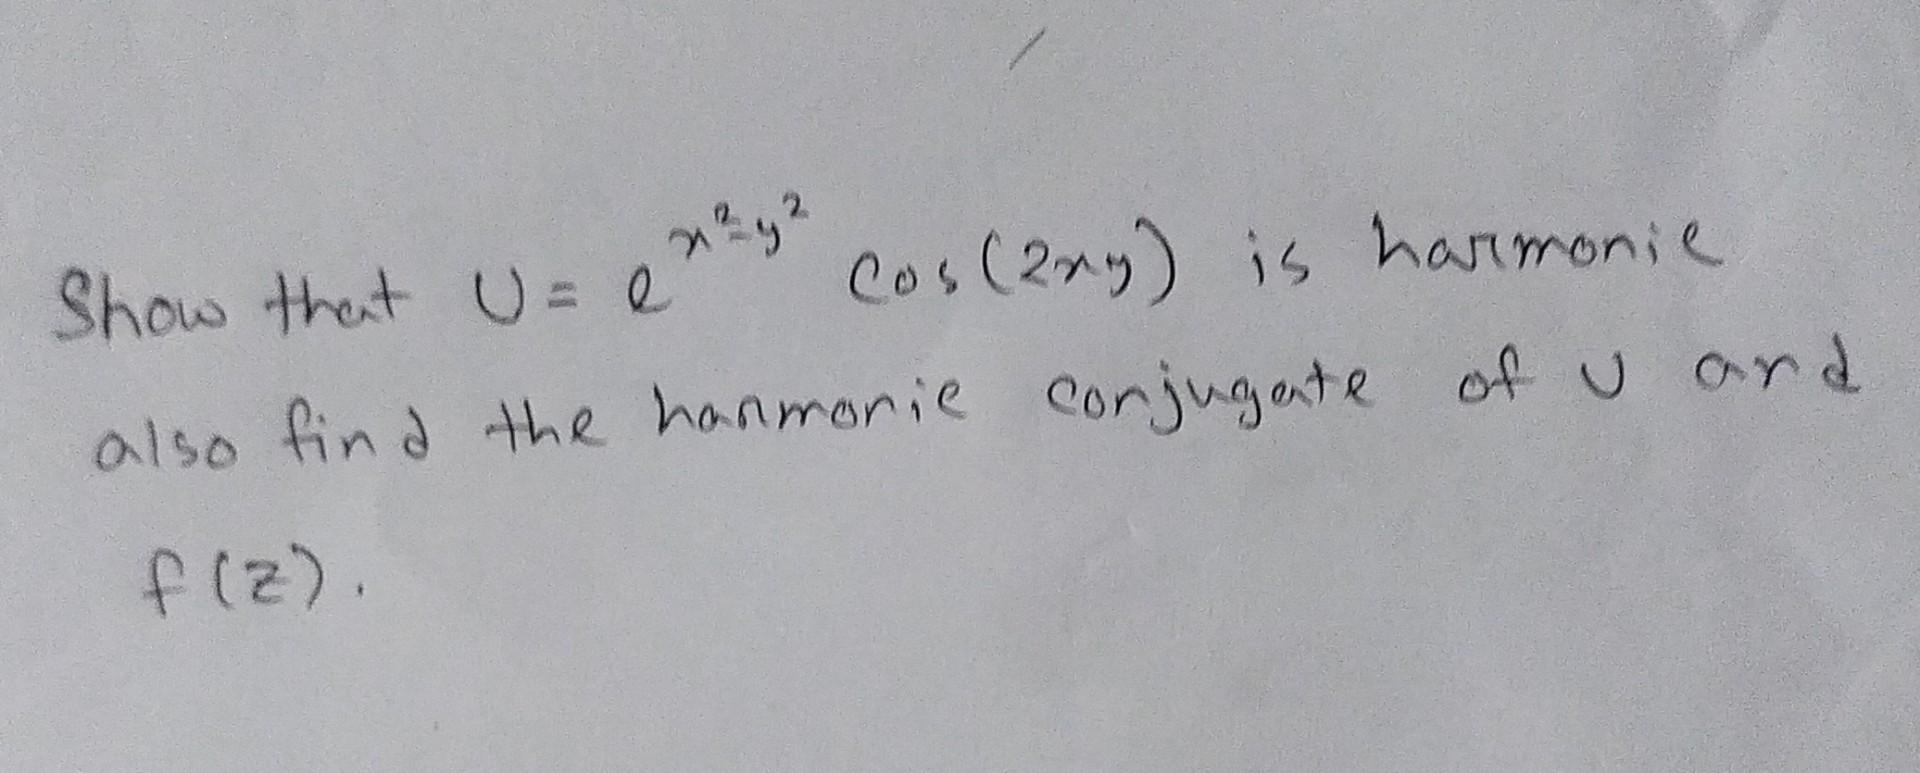 Show that U = e^{x²-y²} cos(2xy) is harmonic
also find the harmonic conjugate of U and
f(z).